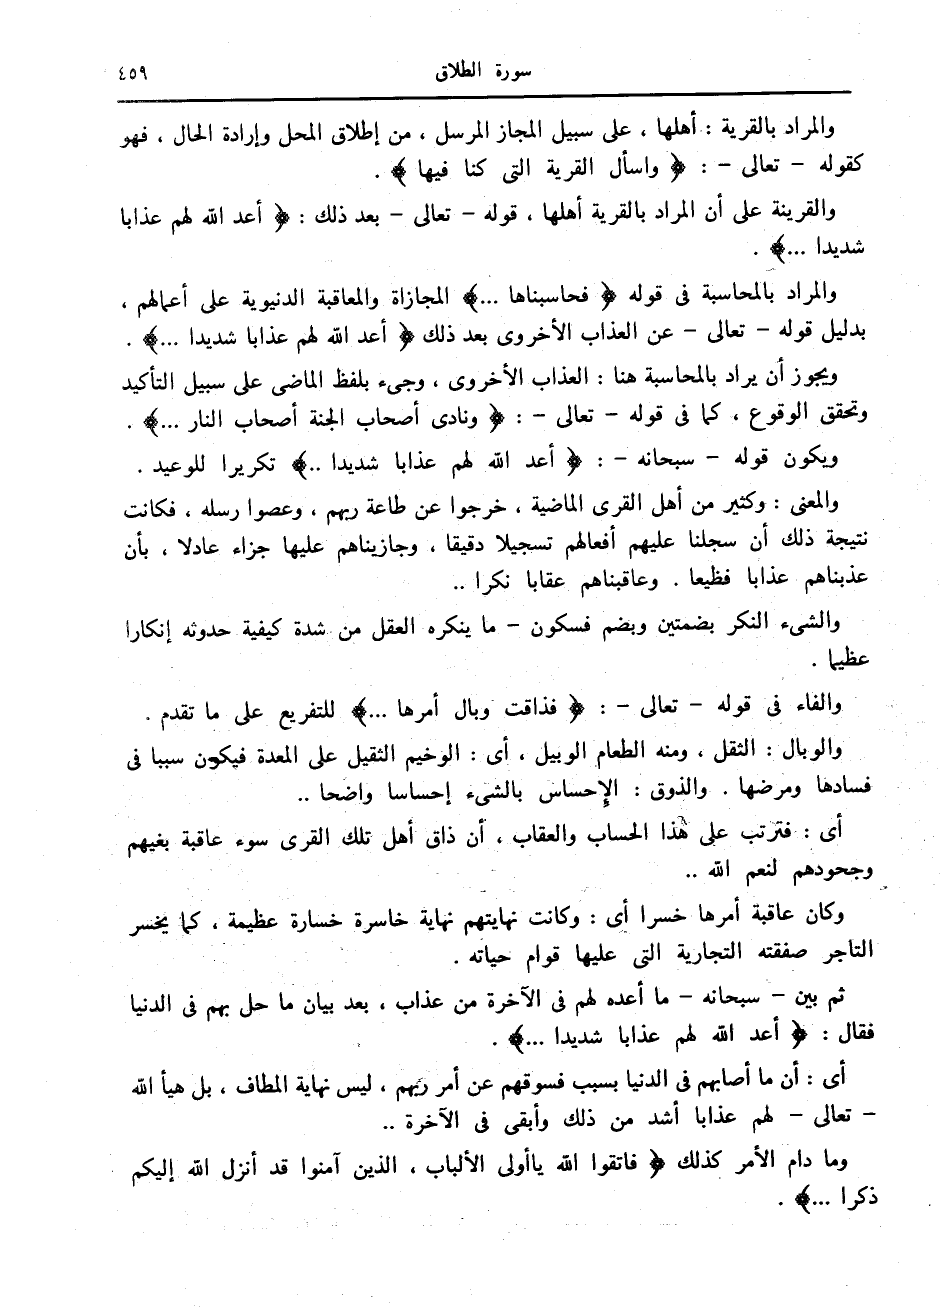 سورة الطلاق ٤٥٩
والمراد بالقرية : أهلها ، على سبيل المجاز المرسل ، من إطلاق المحل وإرادة الحال ، فهو
كقوله – تعالى – : ﴿ واسأل القرية التى كنا فيها ﴾ .
والقرينة على أن المراد بالقرية أهلها ، قوله – تعالى – بعد ذلك : ﴿ أعد الله لهم عذابا
شديدا ...﴾ .
والمراد بالمحاسبة فى قوله ﴿ فحاسبناها ...﴾ المجازاة والمعاقبة الدنيوية على أعمالهم ،
بدليل قوله – تعالى – عن العذاب الأخروى بعد ذلك ﴿ أعد الله لهم عذابا شديدا ...﴾ .
ويجوز أن يراد بالمحاسبة هنا : العذاب الأخروى ، وجىء بلفظ الماضى على سبيل التأكيد
وتحقق الوقوع ، كما فى قوله – تعالى – : ﴿ ونادى أصحاب الجنة أصحاب النار ...﴾ .
ويكون قوله – سبحانه – : ﴿ أعد الله لهم عذابا شديدا ..﴾ تكريرا للوعيد .
والمعنى : وكثير من أهل القرى الماضية ، خرجوا عن طاعة ربهم ، وعصوا رسله ، فكانت
نتيجة ذلك أن سجلنا عليهم أفعالهم تسجيلا دقيقا ، وجازيناهم عليها جزاء عادلا ، بأن
عذبناهم عذابا فظيعا . وعاقبناهم عقابا نكرا ..
والشىء النكر بضمتين وبضم فسكون – ما ينكره العقل من شدة كيفية حدوثه إنكارا
عظيما .
والفاء فى قوله – تعالى – : ﴿ فذاقت وبال أمرها ...﴾ للتفريع على ما تقدم .
والوبال : الثقل ، ومنه الطعام الوبيل ، أى : الوخيم الثقيل على المعدة فيكون سببا فى
فسادها ومرضها . والذوق : الإحساس بالشىء إحساسا واضحا ..
أى : فترتب على هذا الحساب والعقاب ، أن ذاق أهل تلك القرى سوء عاقبة بغيهم
وجحودهم لنعم الله ..
وكان عاقبة أمرها خسرا أى : وكانت نهايتهم نهاية خاسرة خسارة عظيمة ، كما يخسر
التاجر صفقته التجارية التى عليها قوام حياته .
ثم بين – سبحانه – ما أعده لهم فى الآخرة من عذاب ، بعد بيان ما حل بهم فى الدنيا
فقال : ﴿ أعد الله لهم عذابا شديدا ...﴾ .
أى : أن ما أصابهم فى الدنيا بسبب فسوقهم عن أمر ربهم ، ليس نهاية المطاف ، بل هيأ الله
– تعالى – لهم عذابا أشد من ذلك وأبقى فى الآخرة ..
وما دام الأمر كذلك ﴿ فاتقوا الله ياأولى الألباب ، الذين آمنوا قد أنزل الله إليكم
ذكرا ...﴾ .